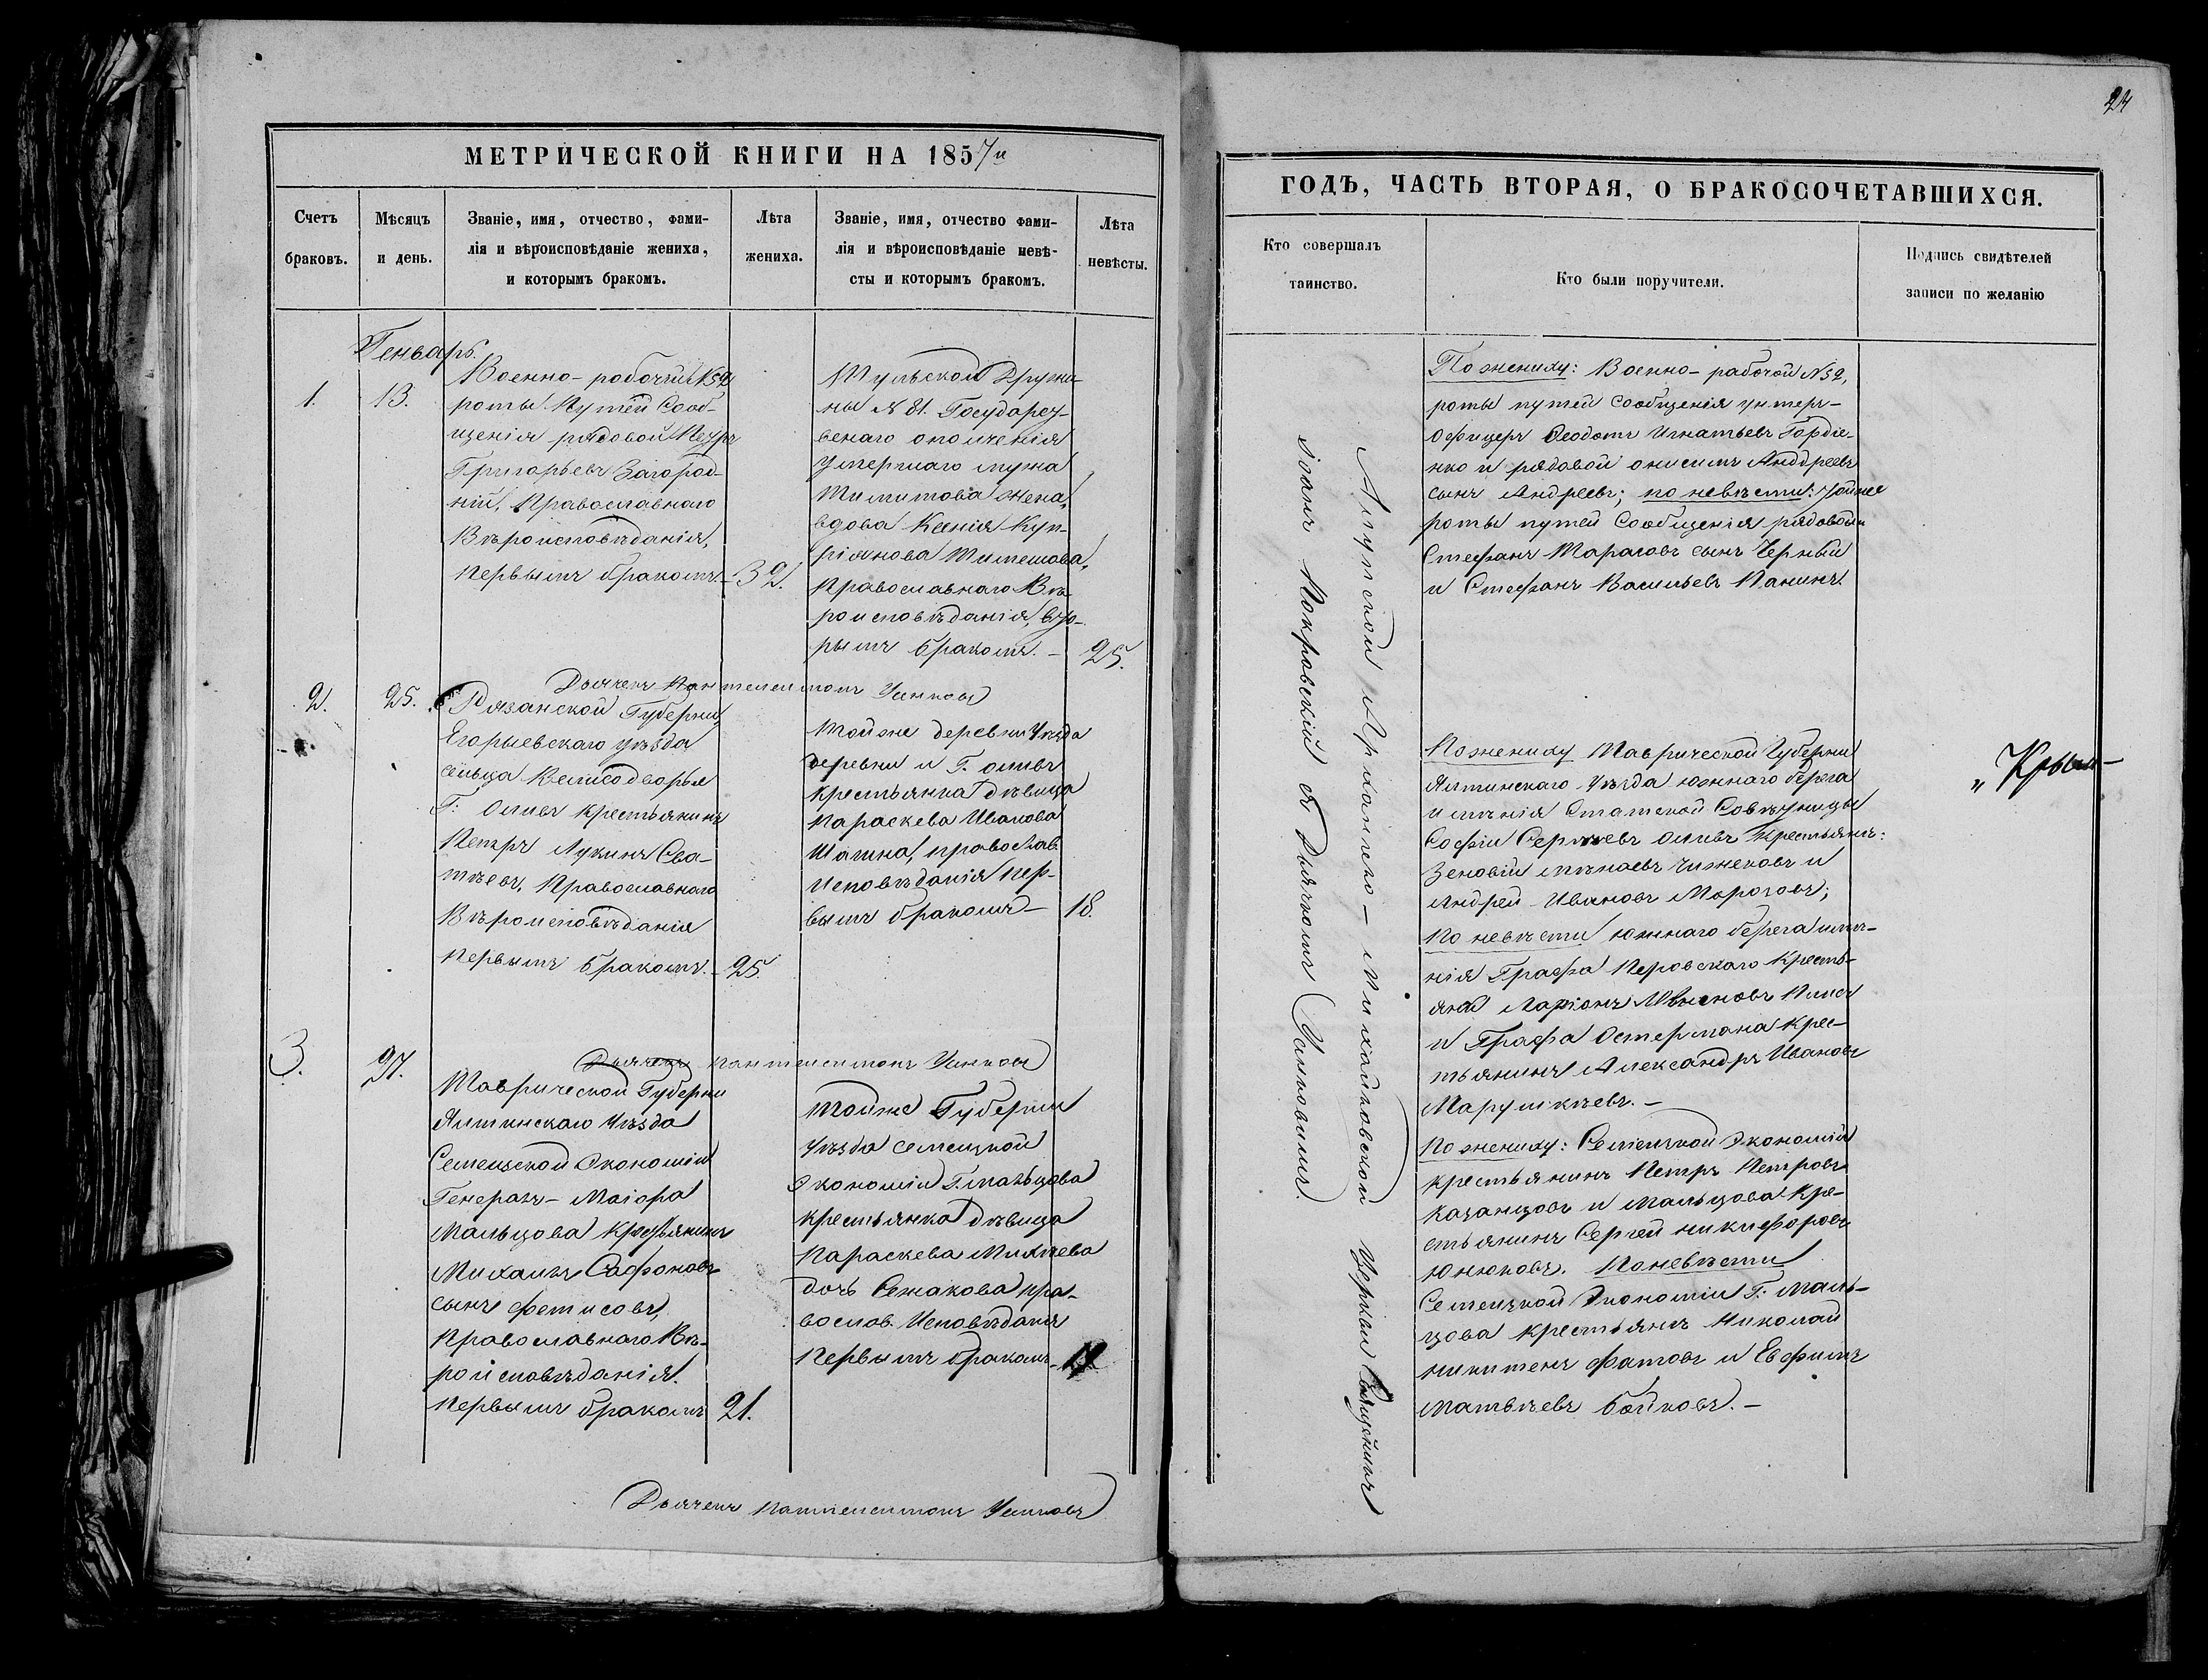 МЕТРИЧЕСКОЙ КНИГИ НА 1857й
Счетъ браковъ.
Мѣсяцъ и день.
Званіе, имя, отчество, фами-
лія и вѣроисповѣданіе жениха,
и которымъ бракомъ.
Лѣта жениха.
Званіе, имя, отчество фами-
лія и вѣроисповѣданіе невѣ-
сты и которымъ бракомъ.
Лѣта невѣсты.
Генварь.
1.
13.
Военно-рабочій №52
роты Путей Сооб-
щенія рядовой Петръ
Григорьевъ Загород-
ній, Православнаго
Вѣроисповѣданія,
первымъ бракомъ.
32.
Тульской Дружи-
ны № 81. Государст-
веннаго ополченія
умершаго мужа
жена,
вдова Ксенія Куп-
ріянова
Православнаго Вѣ-
роисповѣданія, вто-
рымъ бракомъ. –
25.
Дьячекъ Пантелеимонъ
2.
25.
Рязанской Губерніи,
Егорьевскаго уѣзда
сельца
Г: Оливъ крестьянинъ
Петръ Лукинъ Сва-
тѣевъ, Православнаго
Вѣроисповѣданія
первымъ бракомъ. –
25.
Той же деревни Уѣзда
деревни и Г. Оливъ
крестьянка дѣвица
Параскева Иванова
православ.
исповѣданія пер-
вымъ бракомъ –
18.
Дьячекъ Пантелеимонъ
3.
27.
Таврической Губерни
Ялтинскаго Уѣзда
Семеизской Экономіи
Генералъ-Маіора
Мальцова крестьянинъ
Михаилъ Сафоновъ
сынъ Фетисовъ,
Православнаго Вѣ-
роисповѣданія.
первымъ бракомъ
21.
Тойже Губерніи
Уѣзда
Экономіи Г. Мальцова
крестьянка дѣвица
Параскева
дочь пра-
вослов. Исповѣданія
первымъ бракомъ –
Дьячекъ Пантелеимонъ
24
ГОДЪ, ЧАСТЬ ВТОРАЯ, О БРАКОСОЧЕТАВШИХСЯ.
Кто совершалъ
таинство.
Кто были поручители.
Подпись свидѣтелей
записи по желанію
Алупской Архангело-Михайловской Церкви Священникъ
Іоаннъ Покровскій съ Дьячкомъ
По жениху: Военно-рабочой №52,
роты путей сообщенія унтеръ-
офицеръ Ѳеодотъ Игнатьевъ Гордіе-
нко и рядовой Онисимъ Андреевъ
сынъ Андреевъ; по невѣсти: тойже
роты путей Сообщенія рядовыи
Стефанъ Тарасовъ сынъ Черный
и Стефанъ Васильевъ Панинъ.
По жениху Таврической Губерни
Ялтинскаго Уѣзда южнаго берега
имѣнія Статской Совѣтницы
Софіи Сергѣевъ Оливъ крестьянъ:
Зеновій Чижековъ и
Андрей Ивановъ Морозовъ;
По невѣсти южнаго берега имѣ-
нія Графа Перовскаго кресть-
янъ Ларіонъ
и Графа Остермана крес-
тьянинъ Александръ Ивановъ
Марушкѣевъ. –
По жениху: Семеизской Экономіи
крестьянинъ Петръ Петровъ
Казанцовъ и Мальцова кре-
стьянинъ Сергей Никифоровъ
Юнюковъ. По невѣсти
Семеизкой Экономіи Г: Маль-
цова крестьянъ Николай
Фатовъ и Евфимъ
Матвѣевъ Бойковъ. –
„Крым–